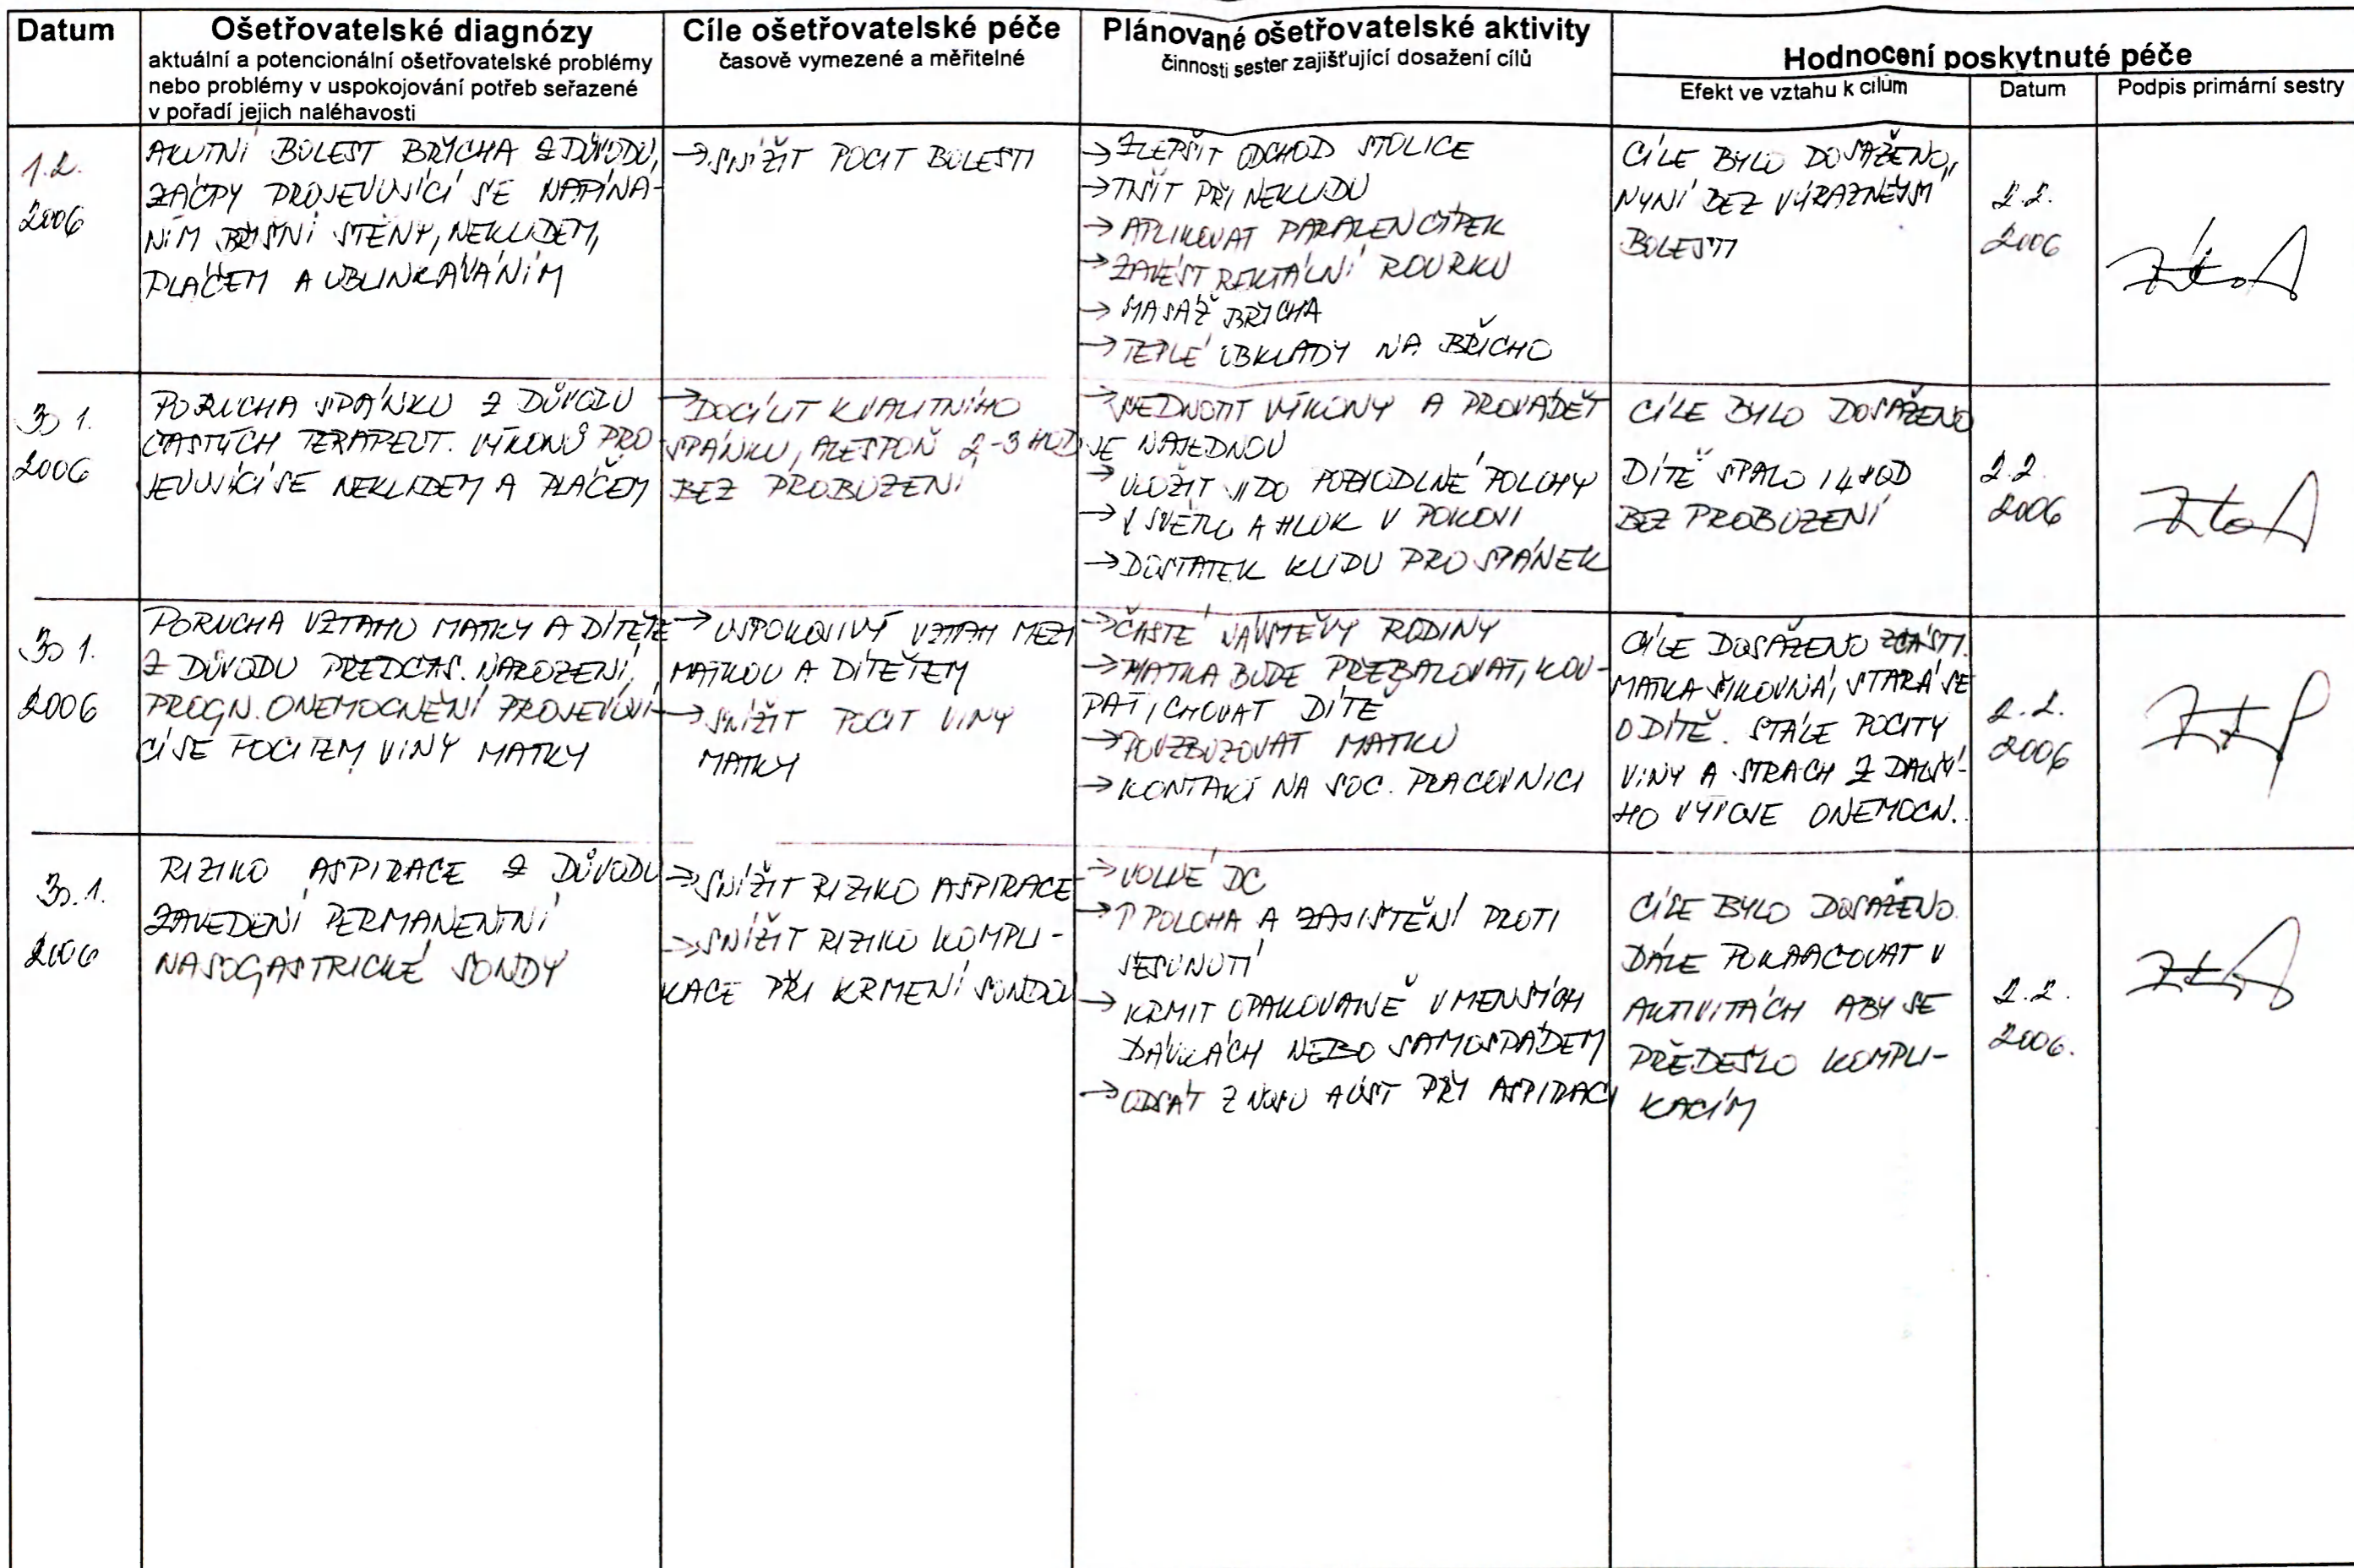 Datum
Ošetřovatelské diagnózy
aktuální a potencionální ošetřovatelské problémy
nebo problémy v uspokojování potřeb seřazené
v pořadí jejich naléhavosti
Cíle ošetřovatelské péče
časově vymezené a měřitelné
Plánované ošetřovatelské aktivity
činnosti sester zajišťující dosažení cílů
Hodnocení poskytnuté péče
Efekt ve vztahu k cílům
Datum
Podpis primární sestry
1.2.
2006
AKUTNÍ BOLEST BŘICHA Z DŮVODU
ZÁCPY PROJEVUJÍCÍ SE NAPÍNÁ-
NÍM BŘIŠNÍ STĚNY, NEKLIDEM,
PLÁČEM A UBLINKÁVÁNÍM
→ SNÍŽIT POCIT BOLESTI
→ ZLEPŠIT ODCHOD STOLICE
→ TIŠIT PŘI NEKLIDU
→ APLIKOVAT PARALEN ČÍPEK
→ ZAVÉST REKTÁLNÍ ROURKU
→ MASÁŽ BŘICHA
→ TEPLÉ OBKLADY NA BŘICHO
CÍLE BYLO DOSAŽENO,
NYNÍ BEZ VÝRAZNĚJŠÍ
BOLESTI
2.2.
2006
30 1.
2006
PORUCHA SPÁNKU Z DŮVODU
ČASTÝCH TERAPEUT. VÝKONŮ PRO-
JEVUJÍCÍ SE NEKLIDEM A PLÁČEM
→ DOCÍLIT KVALITNÍHO
SPÁNKU, ALESPOŇ 2-3 HOD
BEZ PROBUZENÍ
→ SJEDNOTIT VÝKONY A PROVÁDĚT
JE NAJEDNOU
→ ULOŽIT DO POHODLNÉ POLOHY
→ ↓ SVĚTLO A HLUK V POKOJI
→ DOSTATEK KLIDU PRO SPÁNEK
CÍLE BYLO DOSAŽENO
DÍTĚ SPALO HOD
BEZ PROBUZENÍ
2.2.
2006
30 1.
2006
PORUCHA VZTAHU MATKY A DÍTĚTE
Z DŮVODU PŘEDČAS. NAROZENÍ,
PROGN. ONEMOCNĚNÍ PROJEVUJÍ-
CÍ SE POCITEM VINY MATKY
→ USPOKOJIVÝ VZTAH MEZI
MATKOU A DÍTĚTEM
→ SNÍŽIT POCIT VINY
MATKY
→ ČASTÉ NÁVŠTĚVY RODINY
→ MATKA BUDE PŘEBALOVAT, KOU-
PAT, CHOVAT DÍTĚ
→ POVZBUZOVAT MATKU
→ KONTAKT NA SOC. PRACOVNICI
CÍLE DOSAŽENO ZČÁSTI.
MATKA ŠIKOVNÁ, STARÁ SE
O DÍTĚ. STÁLE POCITY
VINY A STRACH Z DALŠÍ-
HO VÝVOJE ONEMOCN.
2.2.
2006
30.1.
2006
RIZIKO ASPIRACE Z DŮVODU
ZAVEDENÍ PERMANENTNÍ
NASOGASTRICKÉ SONDY
→ SNÍŽIT RIZIKO ASPIRACE
→ SNÍŽIT RIZIKO KOMPLI-
KACE PŘI KRMENÍ SONDOU
→ VOLNÉ DC
→ POLOHA A ZAJIŠTĚNÍ PROTI
SESUNUTÍ
→ KRMIT OPAKOVANĚ V MENŠÍCH
DÁVKÁCH NEBO SAMOSPÁDEM
→ ODSÁT Z NOSU A ÚST PŘI ASPIRACI
CÍLE BYLO DOSAŽENO.
DÁLE POKRAČOVAT V
AKTIVITÁCH ABY SE
PŘEDEŠLO KOMPLI-
KACÍM
2.2.
2006.